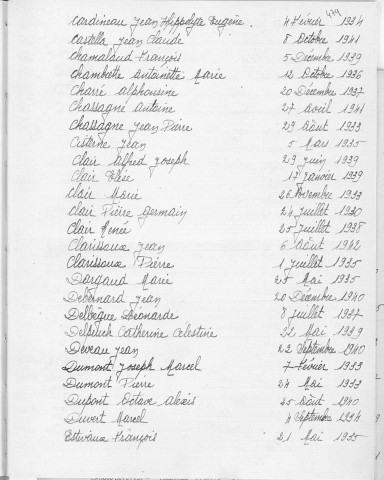 479
Cardineau Jean Hippolyte Eugène. 4 Février 1934
Castella Jean Claude 8 Octobre 1941
Chamalaud François 5 Décembre 1939
Chambette Antoinette Marie 12 Octobre 1936
Charré Alphonsine 20 Décembre 1937
Chassagne Antoine 27 Avril 1941
Chassagne Jean Pierre 29 Août 1933
Cisterne Jean 5 Mars 1935
Clair Alfred Joseph 29 Juin 1939
Clair 17 Janvier 1939
Clair Marie 26 Novembre 1933
Clair Pierre Germain 24 Juillet 1930
Clair Renée 25 Juillet 1938
Clarissoux Jean 6 Août 1942
Clarissoux Pierre 1 Juillet 1935
Dargaud Marie 25 Mai 1935
Debernard Jean 28 Décembre 1940
Delbègue Léonarde 8 Juillet 1937
Catherine Célestine 22 Mai 1939
Deveau Jean 22 Septembre 1940
Dumont Joseph Marcel 7 Février 1933
Dumont Pierre 24 Mai 1933
Dupont Octave Alexis 25 Août 1940
Duvert Marcel 4 Septembre 1934
Estivaux François 21 Mai 1935